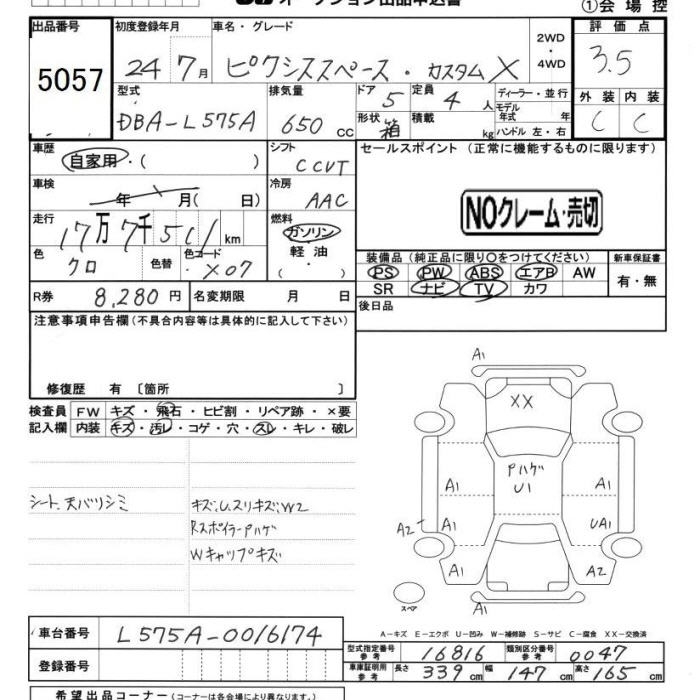 オークション出品申込書
①会場控
出品番号 初度登録年月 車名・グレード 2WD 評価点
5057 24 7月 ピクシススペース・カスタムX ・4WD 3.5
型式 排気量 ドア 5 定員 4人 ディーラー・並行 外装 内装
DBA-L575A 650 cc 形状 箱 積載 kg モデル年式 年 ハンドル 左・右 C C
車歴 自家用・( ) シフト CCVT セールスポイント (正常に機能するものに限ります)
車検 年 月( 日) 冷房 AAC NOクレーム・売切
走行 17万7千501km 燃料 ガソリン
色 クロ 色替 色コード X07 軽油 ・( )
装備品 (純正品に限り〇をつけてください) 新車保証書
PS PW ABS エアB AW 有・無
SR ナビ TV カワ
R券 8,280円 名変期限 月 日 後日品
注意事項申告欄 (不具合内容等は具体的に記入して下さい)
修復歴 有 〔箇所 〕
検査員 FW キズ・飛石・ヒビ割・リペア跡・×要
記入欄 内装 キズ・汚レ・コゲ・穴・スレ・キレ・破レ
シート、天バリシミ キズ、U、スリキズ、W2
Rスポイラー Pハゲ
Wキャップキズ
A1
XX
A1
Pハゲ
U1
A1 A1
A2 A1 UA1
A1 A2
A1
スペア
A-キズ E-エクボ U-凹み W-補修跡 S-サビ C-腐食 XX-交換済
車台番号 L575A-0016174
登録番号
型式指定番号 参考 16816 類別区分番号 参考 0047
車庫証明用 参考 長さ 339cm 幅 147cm 高さ 165cm
希望出品コーナー (コーナーは各会場により異なります)